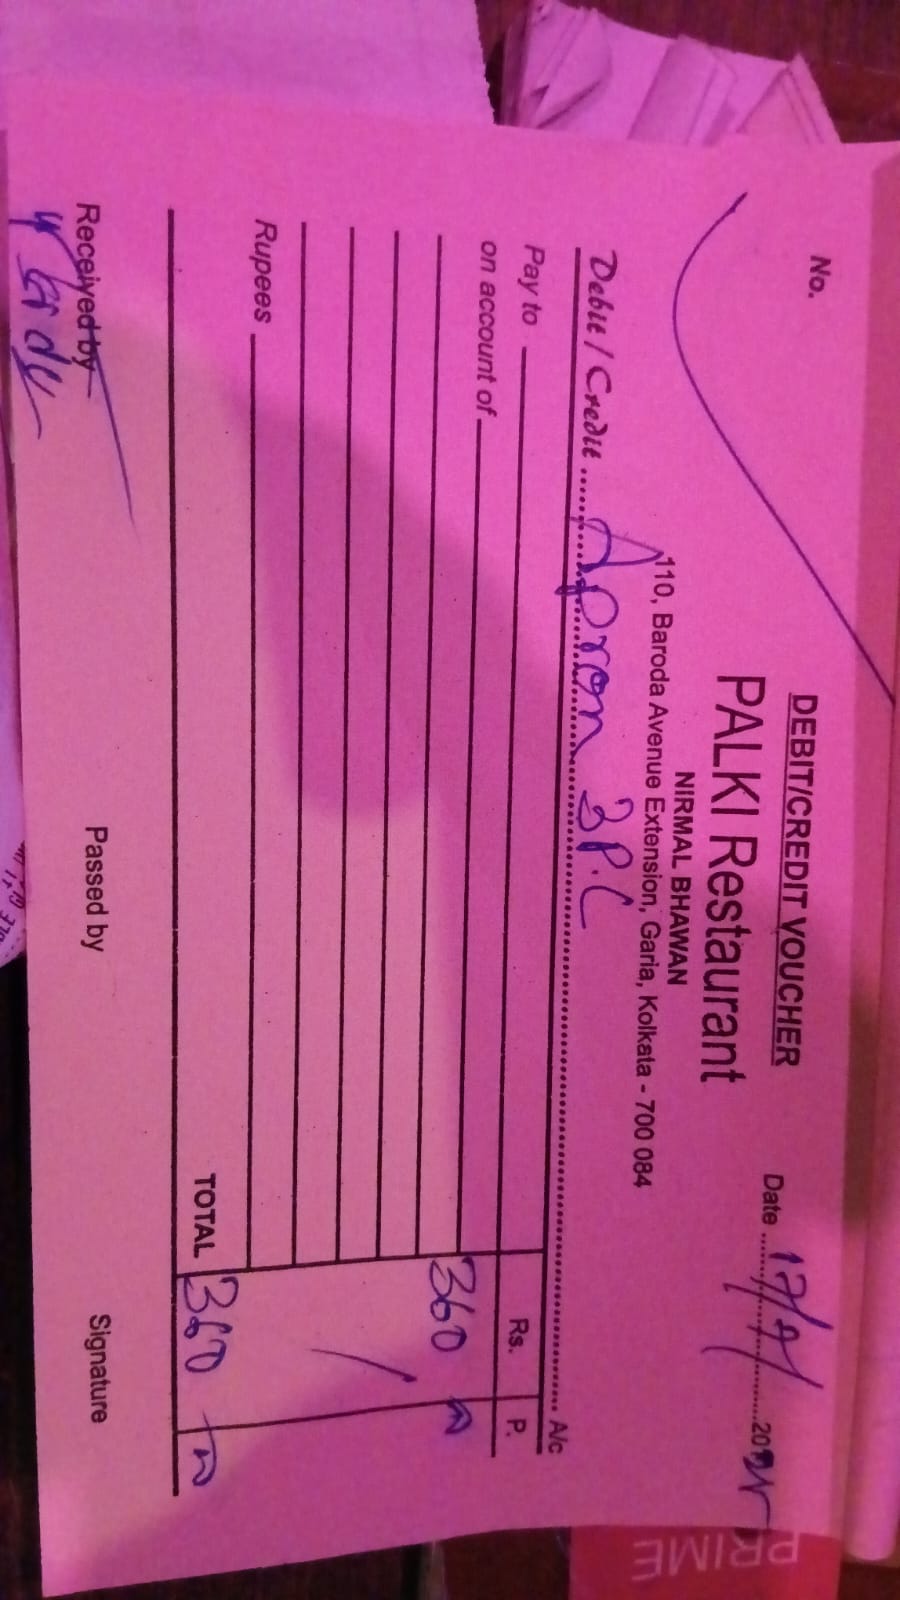 DEBIT/CREDIT VOUCHER
No.
PALKI Restaurant
Date 17/9/ 20
NIRMAL BHAWAN
110, Baroda Avenue Extension, Garia, Kolkata - 700 084
Debit / Credit Apron 3P.C A/c
Pay to Rs. P.
on account of
360
Rupees
TOTAL 360
Received by Passed by Signature
PRIME